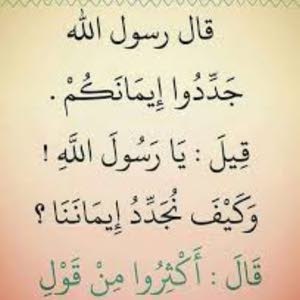 قال رسول الله
جَدِّدُوا إِيمَانَكُمْ .
قِيلَ : يَا رَسُولَ اللَّهِ !
وَكَيْفَ نُجَدِّدُ إِيمَانَنَا ؟
قَالَ : أَكْثِرُوا مِنْ قَوْلِ